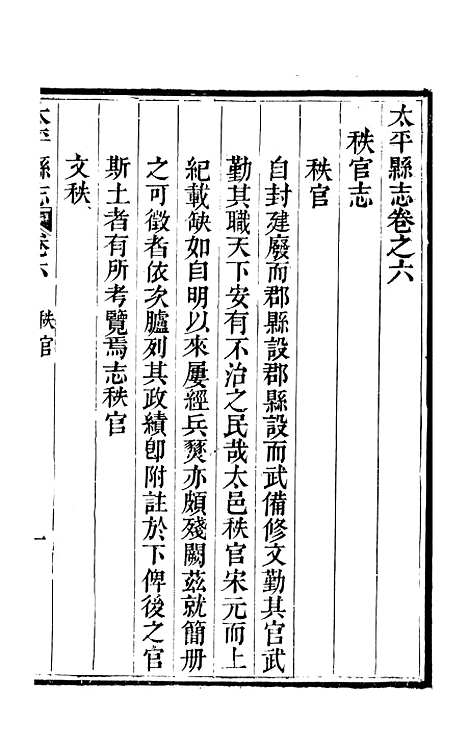 太平縣志卷之六
秩官志
秩官
自封建廢而郡縣設郡縣設而武備修文勤其官武
勤其職天下安有不治之民哉太邑秩官宋元而上
紀載缺如自明以來屢經兵燹亦頗殘闕茲就簡册
之可徵者依次臚列其政績卽附註於下俾後之官
斯土者有所考覽焉志秩官
文秩
太平縣志 卷六 秩官 一